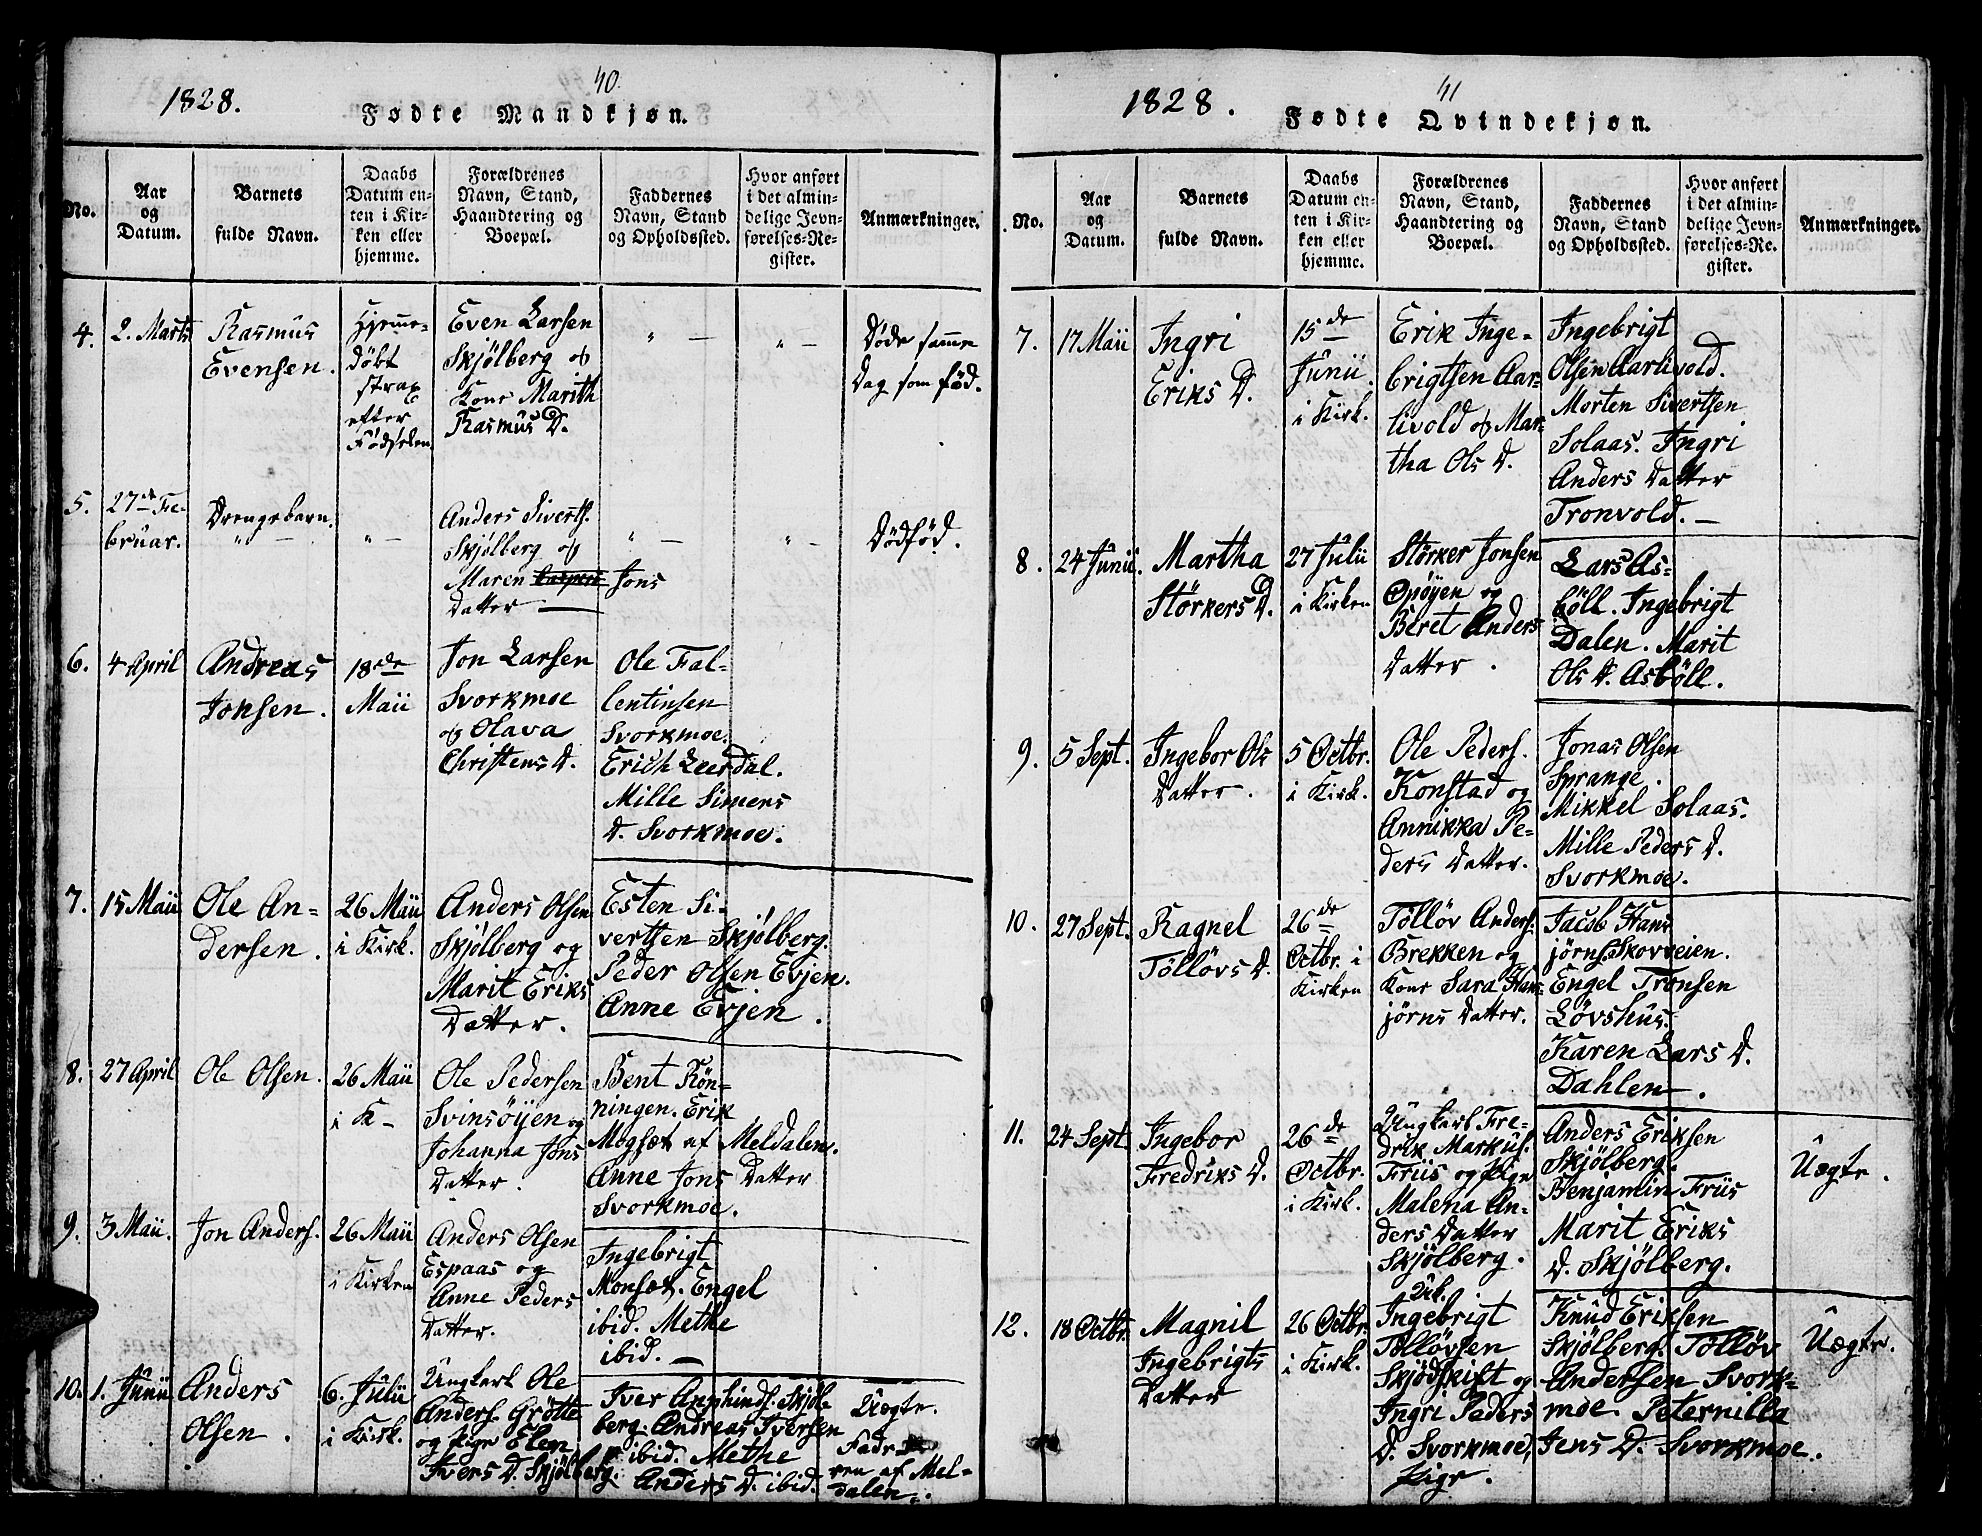 1828.
40.
Fødte Mandkjøn.
No.
Aar
og
Datum.
Barnets
fulde Navn.
Daabs
Datum en-
ten i Kir-
ken eller
hjemme.
Forældrenes
Navn, Stand,
Haandtering og
Boepæl.
Faddernes
Navn, Stand
og Opholdssted.
Hvor anført
i det almin-
delige Jevn-
førelses-Re-
gister.
Anmærkninger.
4.
2. Marts
Rasmus
Evensen.
Hjemme-
døbt
strax
efter
Fødselen
Even Larsen
Skjølberg og
Kone Marith
Rasmus D.
" —
" —
Døde samme
Dag som fød.
5.
27de Fe-
bruar.
Drengebarn.
" —
" —
Anders Siverts.
Skjølberg og
Maren Jons
Datter —
" —
" —
Dødfød.
6.
4 April
Andreas
Jonsen.
18de
Maii
Jon Larsen
Svorkmoe
og Olava
Christens D.
Ole Fal-
lentinsen
Svorkmoe.
Erich Leerdal.
Mille Simens
D. Svorkmoe.
7.
15 Maii
Ole An-
dersen.
26 Maii
i Kirk.
Anders Olsen
Skjølberg og
Marit Eriks
Datter.
Esten Si-
vertsen Skjølberg.
Peder Olsen Evjen.
Anne Evjen.
8.
27 April
Ole Olsen.
26 Maii
i K—
Ole Pedersen
Svinsøyen og
Johanna Jons
Datter.
Bent Røn-
ningen. Erik
Mogset af Meldalen.
Anne Jons Datter
Svorkmoe.
9.
3 Maii.
Jon Anders.
26 Maii
i Kirken
Anders Olsen
Espaas og
Anne Peders
Datter.
Ingebrigt
Monset. Engel
ibid. Methe
ibid. —
10.
1. Junii
Anders
Olsen.
6. Julii
i Kirk.
Ungkarl Ole
Anders. Grøtte
og Pige Elen
Ivers D. Skjølberg.
Iver Skjøl-
berg. Andreas Iversen
ibid. Methe
Anders D. ibid.
Uægte.
Fade-
ren af Mel-
dalen.
1828.
41
Fødte Qvindekjøn.
No.
Aar
og
Datum.
Barnets
fulde Navn.
Daabs
Datum en-
ten i Kir-
ken eller
hjemme.
Forældrenes
Navn, Stand,
Haandtering og
Boepæl.
Faddernes
Navn, Stand
og Opholdssted.
Hvor anført
i det almin-
delige Jevn-
førelses-Re-
gister.
Anmærkninger.
7.
17 Maii
Ingri
Eriks D.
15de
Junii
i Kirk.
Erik Inge-
brigtsen Aar-
livold og Mar-
tha Ols D.
Ingebrigt
Olsen Aarlivold.
Morten Sivertsen
Solaas. Ingri
Anders Datter
Tronvold. —
8.
24 Junii.
Martha
Størkers D.
27 Julii
i Kirken
Størker Jonsen
Opøyen og
Beret Anders
Datter.
Lars As-
böll. Ingebrigt
Dalen. Marit
Ols D. Asböll.
9.
5 Sept.
Ingebor Ols
Datter.
5 Octbr.
i Kirk.
Ole Peders.
Konstad og
Annikka Pe-
ders Datter.
Jonas Olsen
Sprange.
Mikkel Solaas.
Mille Peders D.
Svorkmoe.
10.
27 Sept.
Ragnel
Tølløvs D.
26de
Octbr. i
Kirken
Tølløv Anders.
Brekken og
Kone Sara Han-
jørns Datter.
Jacob Han-
jørns. Skovveien.
Engel Tronsen
Løvshus.
Karen Lars D.
Dahlen.
11.
24 Sept.
Ingebor
Fredriks D.
26de
Octbr.
i Kirk.
Ungkarl Fre-
drik Markus.
Friis og Pige
Malena An-
ders Datter
Skjølberg.
Anders Eriksen
Skjølberg.
Benjamin Friis
Marit Eriks
D. Skjølberg.
Uægte.
12.
18 Octbr.
Magnil
Ingebrigts
Datter
26 Octbr.
i Kirk.
Uk.
Ingebrigt
Tølløvsen
Skjødskift og
Ingri Peders
D. Svorkmoe,
Pige.
Knud Eriksen
Skjølberg. Tølløv
Andersen Svork-
moe. Peternilla
Jens D. Svorkmoe.
Uægte.